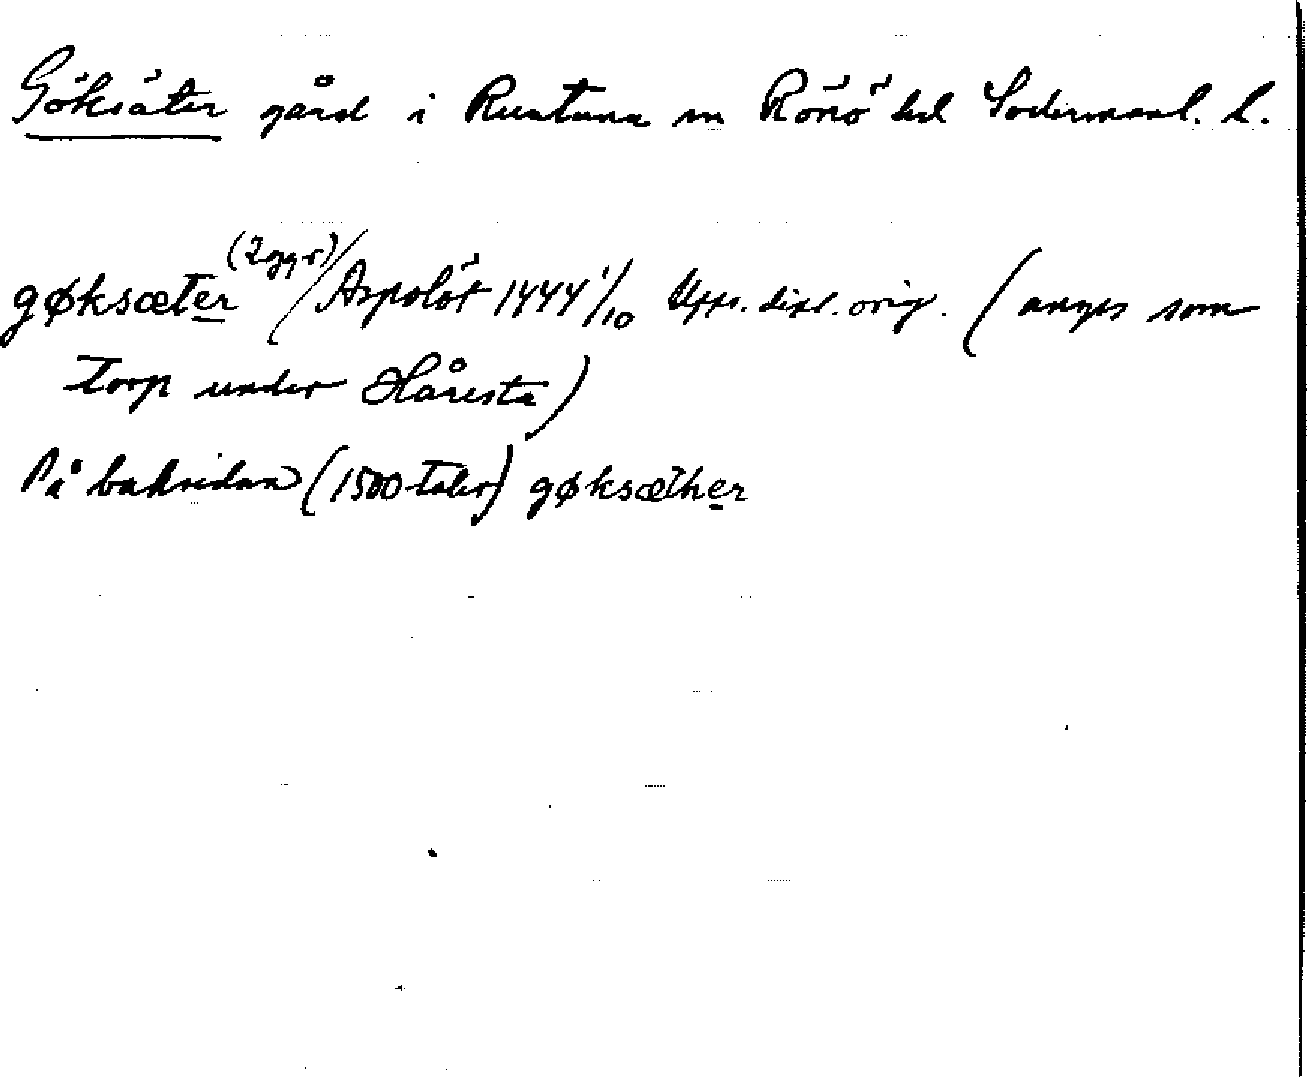 Göksäter gård i Runtuna sn Rönö hd Södermanl. l.
gøksæter (2 ggr) / Aspolöt 1444 1/10 Upps. dipl. orig. (anges som
torp under Håresta)
På baksidan (1500-talet) gøksæther